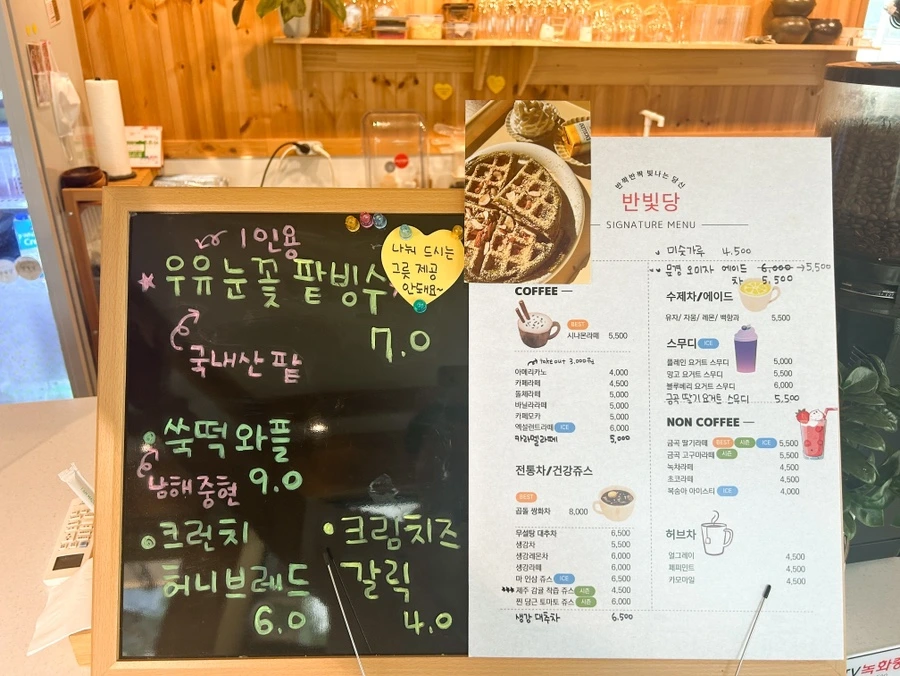 1인용
우유눈꽃 팥빙수
나눠 드시는
그릇 제공
안돼요~
7.0
국내산 팥
쑥떡 와플
남해중현 9.0
크런치
허니브레드
6.0
크림치즈
갈릭
4.0
반짝반짝 빛나는 당신
반빛당
SIGNATURE MENU
미숫가루 4,500
문경 오미자 에이드 6,000 → 5,500
차 5,500
COFFEE
BEST
시나몬라떼 5,500
take out 3,000원
아메리카노 4,000
카페라떼 4,500
돌체라떼 5,000
바닐라라떼 5,000
카페모카 5,000
엑설런트라떼 ICE 6,000
카라멜라떼 5,000
전통차/건강쥬스
BEST
곱돌 쌍화차 8,000
무설탕 대추차 6,500
생강차 5,500
생강레몬차 6,000
생강라떼 6,000
마 인삼 쥬스 ICE 6,500
제주 감귤 착즙 쥬스 시즌 4,500
찐 당근 토마토 쥬스 시즌 6,000
생강 대추차 6,500
수제차/에이드
유자/ 자몽/ 레몬/ 백향과 5,500
스무디 ICE
플레인 요거트 스무디 5,000
망고 요거트 스무디 5,500
블루베리 요거트 스무디 6,000
금곡 딸기 요거트 스무디 5,500
NON COFFEE
금곡 딸기라떼 BEST 시즌 ICE 5,500
금곡 고구마라떼 시즌 5,500
녹차라떼 4,500
초코라떼 4,500
복숭아 아이스티 ICE 4,000
허브차
얼그레이 4,500
페퍼민트 4,500
카모마일 4,500